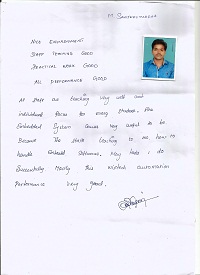 Nice Environment
Staff Teaching Good
Practical work Good
All performance Good
All staff are teaching very well and
individual focus for every student. The
Embedded System course very useful to me.
Because the staff teaching to me, how to
handle Embedded Software, how to do
Successfully. Mostly this wintech automation
Performance very good.